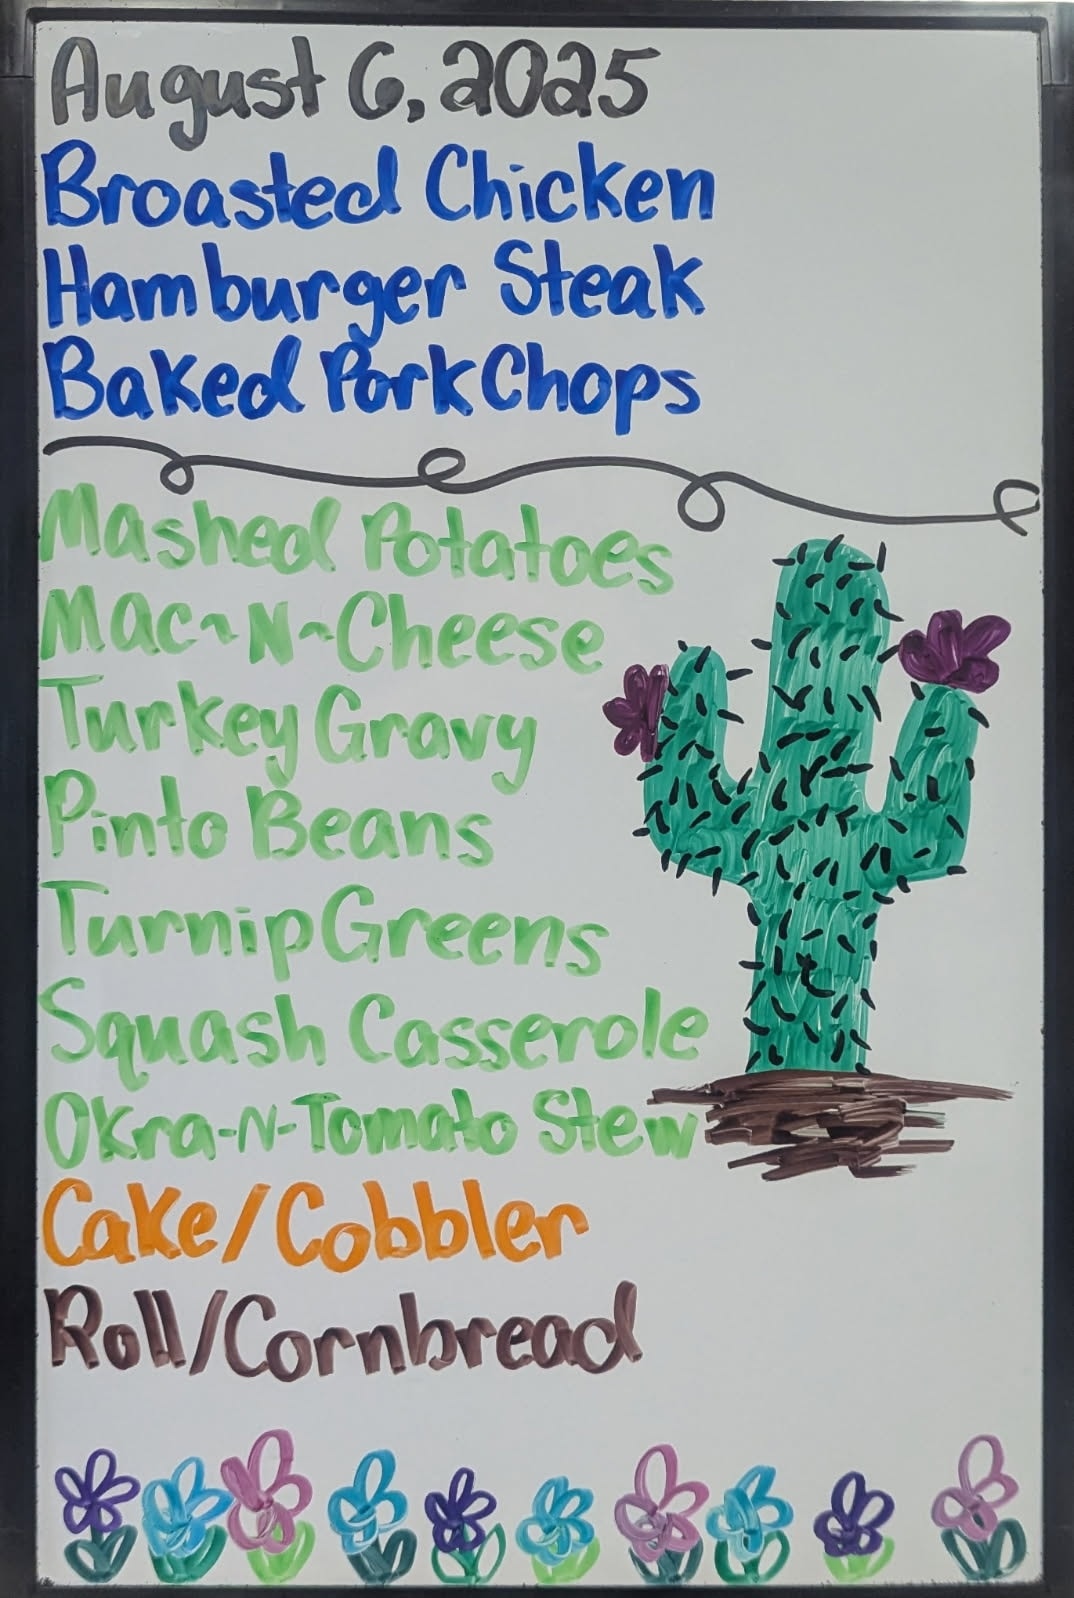 August 6, 2025
Broasted Chicken
Hamburger Steak
Baked Pork Chops
Mashed Potatoes
Mac~N~Cheese
Turkey Gravy
Pinto Beans
Turnip Greens
Squash Casserole
Okra-N-Tomato Stew
Cake/Cobbler
Roll/Cornbread